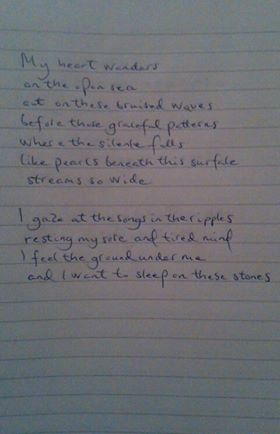 My heart wanders
on the open sea
out on these bruised waves
before those graceful patterns
where the silence falls
like pearls beneath this surface
streams so wide
I gaze at the songs in the ripples
resting my sore and tired mind
I feel the ground under me
and I want to sleep on these stones